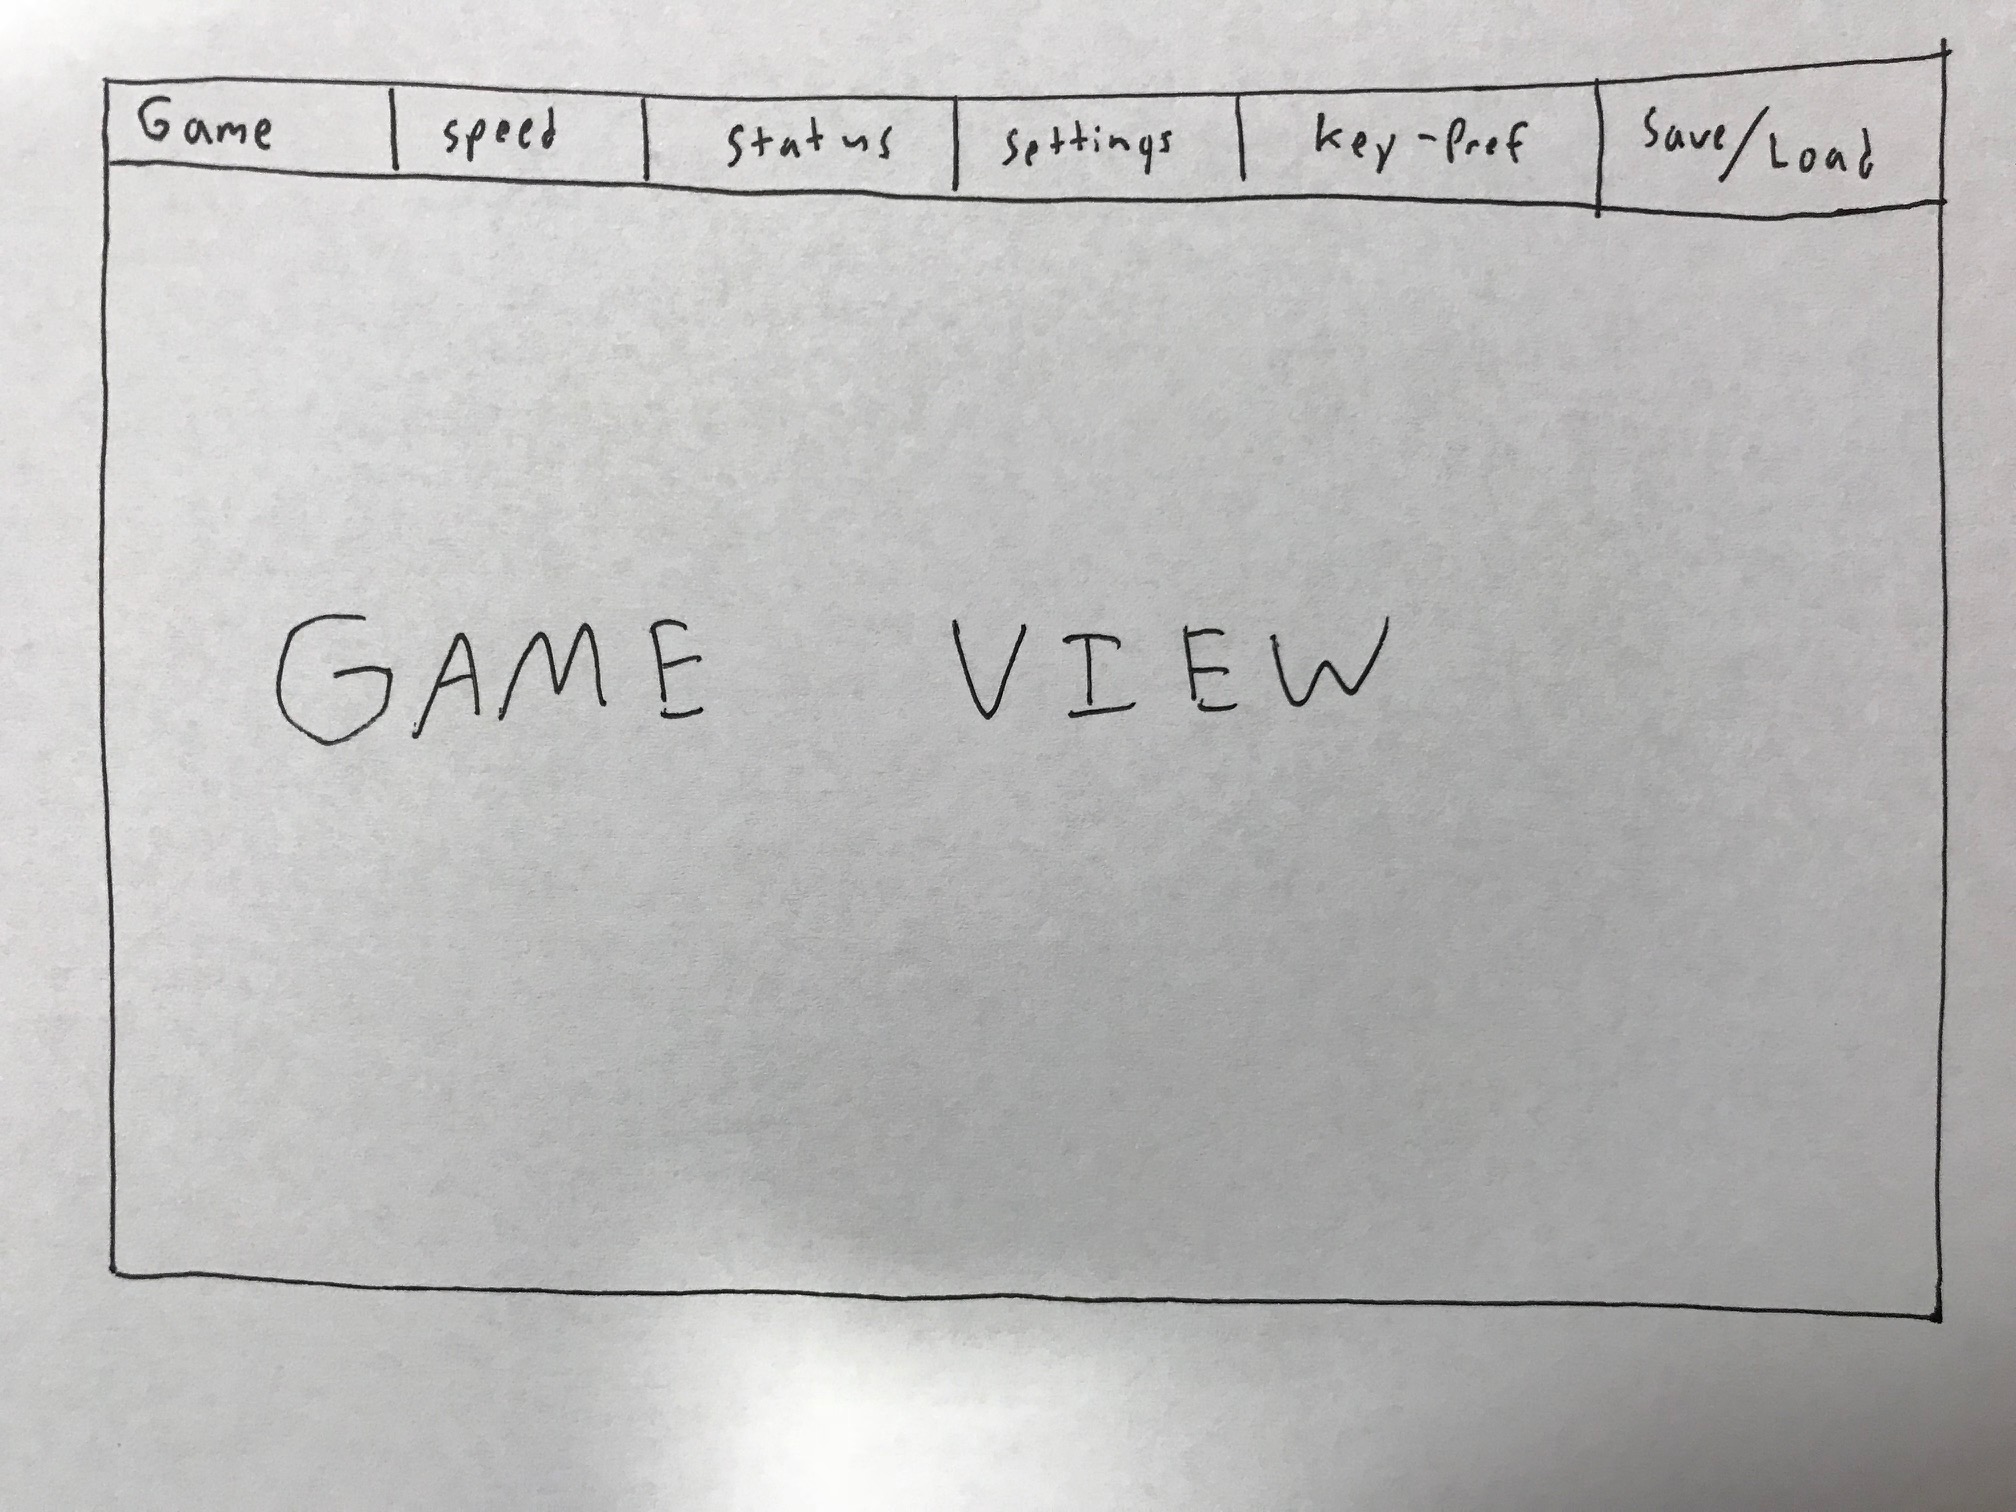 Game speed status settings key-Pref Save/Load
GAME VIEW